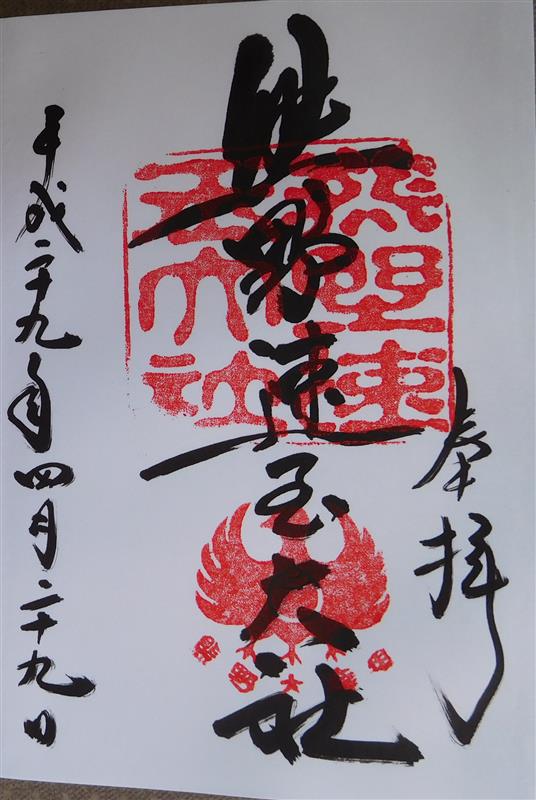 奉拝
熊野速玉大社
平成二十九年四月二十九日
熊野速
玉大社